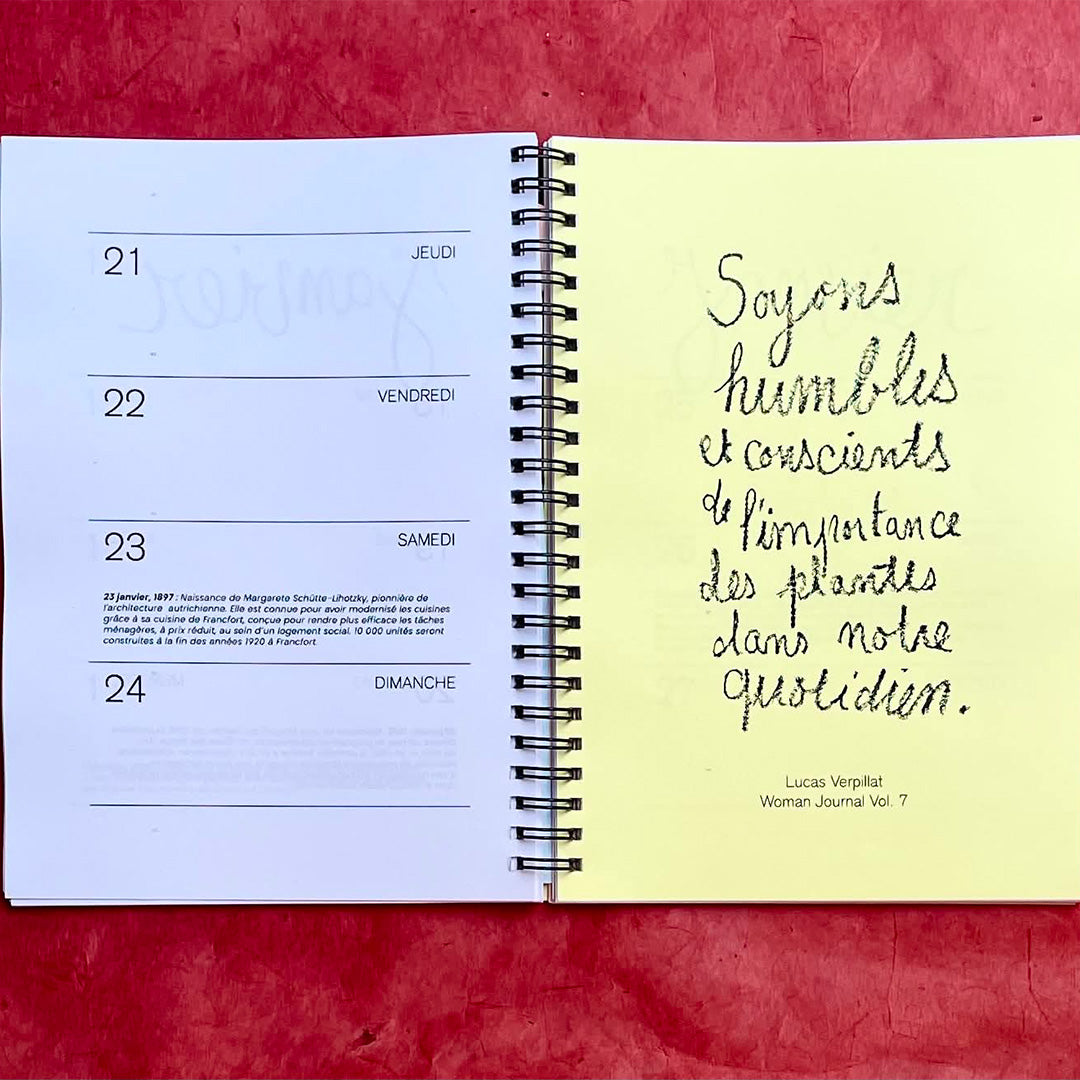 21 JEUDI
22 VENDREDI
23 SAMEDI
23 janvier, 1897 : Naissance de Margarete Schütte-Lihotzky, pionnière de
l'architecture autrichienne. Elle est connue pour avoir modernisé les cuisines
grâce à sa cuisine de Francfort, conçue pour rendre plus efficace les tâches
ménagères, à prix réduit, au sein d'un logement social. 10 000 unités seront
construites à la fin des années 1920 à Francfort.
24 DIMANCHE
Soyons
humbles
et conscients
de l'importance
des plantes
dans notre
quotidien.
Lucas Verpillat
Woman Journal Vol. 7